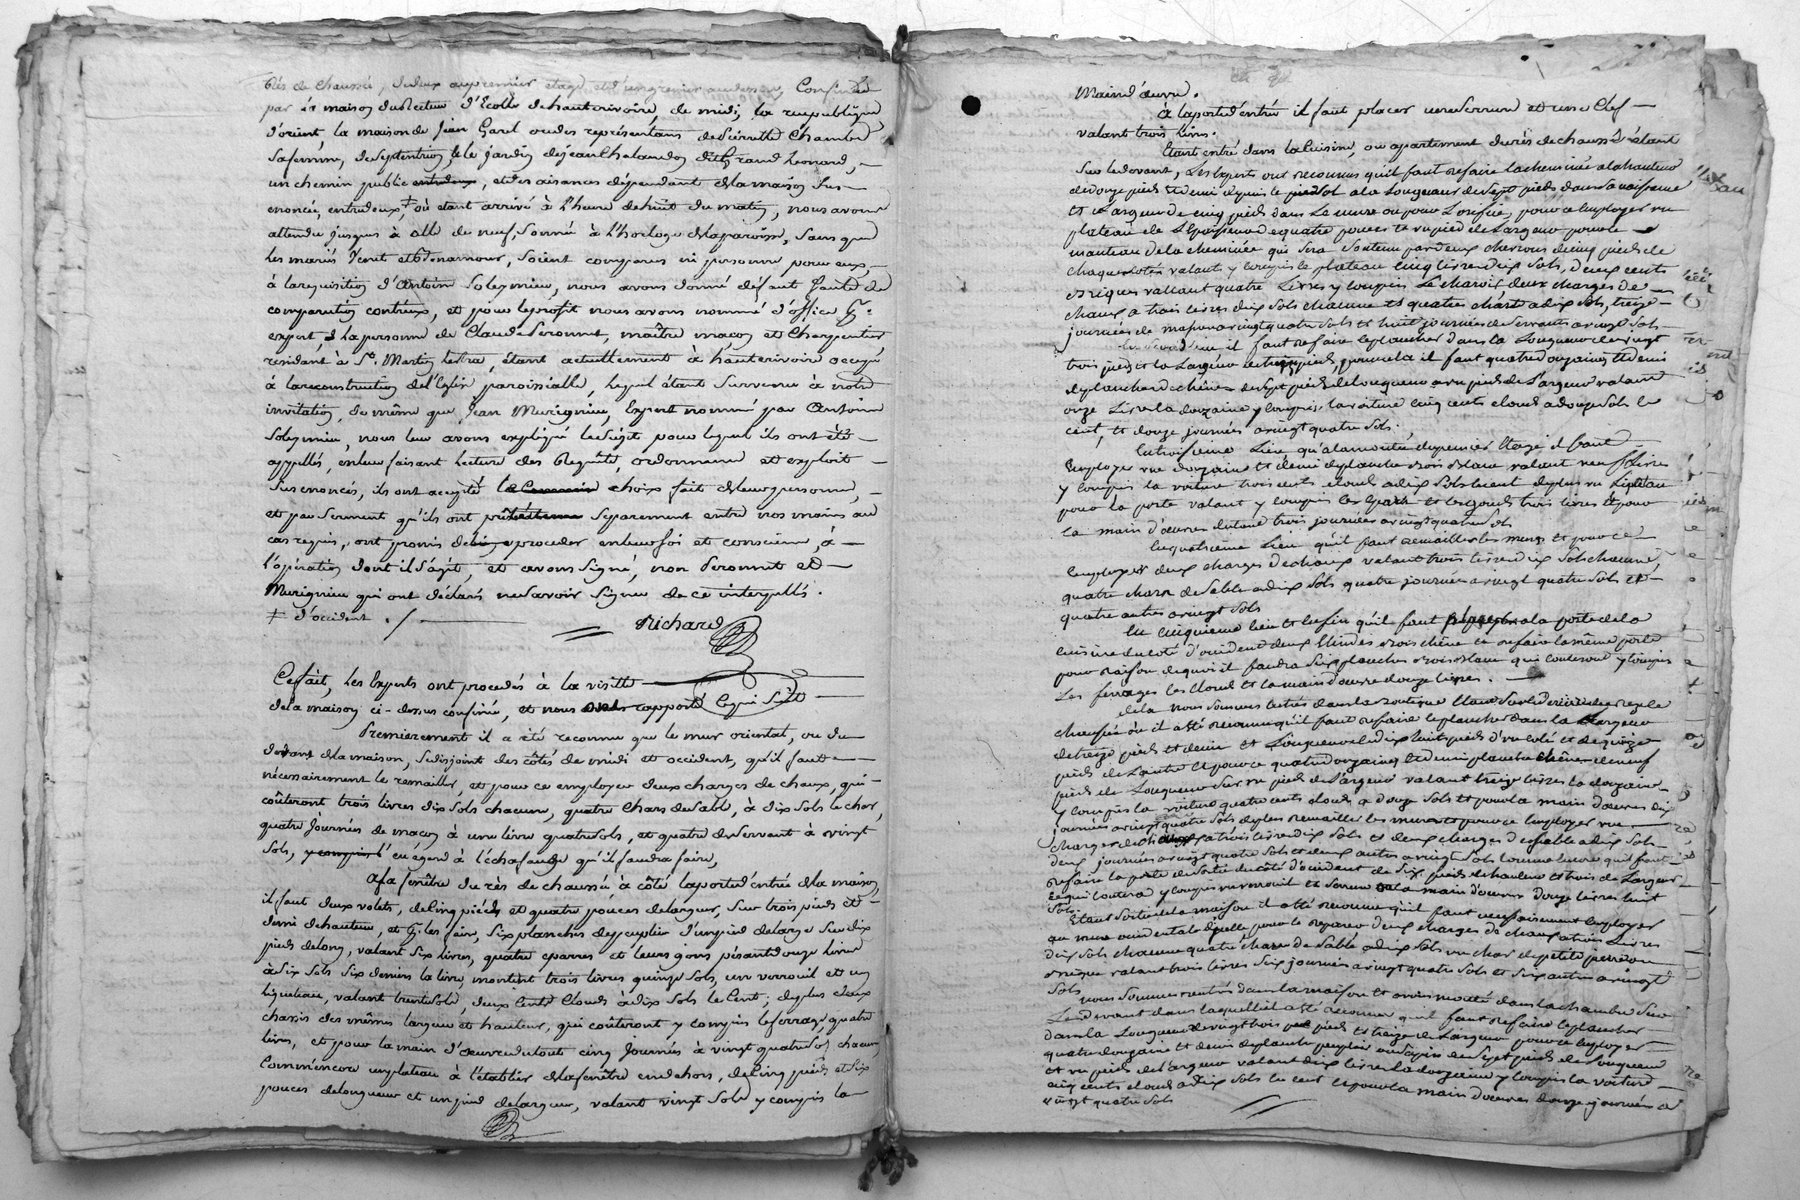 rés de chaussée, de deux au premier étage et d'un grenier au dessus, Confinée
par la maison du Recteur d'Ecolle de hauterivoire, de midi, la rue publique,
d'orient la maison de Jean Garel ou des représentans de Pierrette Chambe
sa femme, de septentrion le jardin de jean Chalandon dit Grand Leonard,
un chemin public entredeux, et des aisances dépendant de la maison sus-
enoncée, entredeux,‡ où etant arrivé à l'heure de huit du matin, nous avons
attendu jusques à celle de neuf, sonnée à l'horloge de la paroisse, sans que
les mariés Venet et Bonnamour, soient comparus ni personne pour eux,
à la requisition d'Antoine Solezmieu, nous avons donné défaut faute de
comparution contr'eux, et pour le profit nous avons nommé d'office pr.
expert, la personne de Claude Peronnet, maître maçon et Charpentier
residant à St. Martin Lestra, étant actuellement à hauterivoire occupé
à la reconstruction de l'Eglise paroissialle, lequel étant survenu à notre
invitation, de même que Jean Murigneux, Expert nommé par Antoine
Solezmieu, nous leur avons expliqué le sujet pour lequel ils ont été
appellés, en leur faisant lecture des Requête, ordonnance et exploit
sus enoncés, ils ont accepté le choix fait de leur personne,
et par serment qu'ils ont prêté separement entre nos mains au
cas requis, ont promis de procéder en leur foi et conscience, à
l'opération dont il s'agit, et avons signé, non Peronnet et
Murigneux qui ont déclaré ne savoir signer de ce interpellés.
‡ d'occident ./.
Richard
Ce fait, les Experts ont procédés à la visitte
de la maison ci-dessus confinée, et nous ont rapporté ce qui suit
Premierement il a été reconnu que le mur oriental, ou du
devant de la maison, se disjoint des côtés de midi et occident, qu'il faut
nécessairement le remailler, et pour ce employer deux charges de chaux, qui
coûteront trois livres dix sols chacune, quatre chars de sable, à dix sols le char,
quatre journées de maçon à une livre quatre sols, et quatre de servant à vingt
sols, eu égard à l'échafaudage qu'il faudra faire,
A la fenêtre du rès de chaussée à côté la porte d'entrée de la maison,
il faut deux volets, de cinq pieds et quatre pouces de largeur, sur trois pieds et
demi de hauteur, et pr. les faire, six planches de peuplier d'un pied de large sur dix
pieds de long, valant six livres, quatre eparres et leurs gons pésant douze livres
à six sols six deniers la livre, montent trois livres quinze sols, un verrouil et un
liqueteau, valant trente sols, deux cents clouds à dix sols le cent; de plus deux
chassis des mêmes largeur et hauteur, qui coûteront y compris le ferrage quatre
livres, et pour la main d'œuvre du tout cinq journées à vingt quatre sols chacune,
Comm'encore un plateau à l'établir de la fenêtre en dehors, de cinq pieds et six
pouces de longueur et un pied de largeur, valant vingt sols y compris la
Main d'œuvre.
à la porte d'entrée il faut placer une serrure et une Clef
valant trois livres.
Etant entré dans la Cuisine, ou appartement du rès de chaussée étant
sur le devant, les Experts ont reconnus qu'il faut refaire la cheminée à la hauteur
de douze pieds et demi depuis le sol à la longueur de sept pieds dans sa naissance
et largeur de cinq pieds dans le mur ou pour l'orifice, pour ce employer un
plateau de l'épaisseur de quatre pouces et un pied de largeur pour le
manteau de la cheminée qui sera soutenu par deux chevrons de cinq pieds de
chaque cotés valant y compris le plateau cinq livres dix sols, deux cents
briques vallant quatre livres y compris le charoi, deux charges de
chaux à trois livres dix sols chacune et quatre chars à dix sols, treize
journées de maçon à vingt quatre sols et huit journées de servants à vingt sols
En second lieu il faut refaire le plancher dans la longueur de vingt
trois pieds et la largeur de treize pieds, pour cela il faut quatre douzaines et demi
de planches de chêne de sept pieds de longueur à un pied de largeur valant
onze livres la douzaine y compris la voiture cinq cents clouds à douze sols le
cent, et douze journées à vingt quatre sols.
En troisieme lieu qu'à la montée du premier étage il faut
employer une douzaine et demi de planches bois blanc valant neuf livres
y compris la voiture trois cents clouds à dix sols le cent de plus un liqueteau
pour la porte valant y compris les eparres et les gonds trois livres et pour
la main d'œuvre du tout trois journées à vingt quatre sols
En quatrieme lieu qu'il faut remailler les murs et pour ce
employer deux charges de chaux valant trois livres dix sols chacune,
quatre chars de sable à dix sols quatre journées à vingt quatre sols et
quatre autres à vingt sols
En cinquieme lieu et enfin qu'il faut placer à la porte de la
cuisine du coté d'occident deux bois chêne et refaire la même porte
pour raison de quoi il faudra six planches bois blanc qui couteront y compris
les ferrages les clouds et la main d'œuvre douze livres.
de la nous sommes entrés dans la boutique étant sur le derriere du rez de
chaussée où il a été reconnu qu'il faut refaire le plancher dans la largeur
de treize pieds et demi et longueur de dix huit pieds d'un coté et de quinze
pieds de l'autre et pour ce quatre douzaines et demi planches chêne de neuf
pieds de longueur sur un pied de largeur valant treize livres la douzaine
y compris la voiture quatre cents clouds à douze sols et pour la main d'œuvre dix
journées à vingt quatre sols de plus remailler les murs et pour ce employer une
charge de chaux à trois livres dix sols et deux charges de sable à dix sols
deux journées à vingt quatre sols et deux autres à vingt sols comme encore qu'il faut
refaire la porte de sortie du côté d'occident de six pieds de hauteur et trois de largeur
ce qui coutera y compris un verrouil et serrure et la main d'œuvre douze livres huit
sols.
Etant sortis de la maison il a été reconnu qu'il faut necessairement employer
au mur occidental d'icelle pour le reparer deux charges de chaux à trois livres
dix sols chacune quatre chars de sable à dix sols un char de petite pierre ou
brique valant trois livres six journées à vingt quatre sols et six autres à vingt
sols
nous sommes rentrés dans la maison et avons monté dans la chambre sur
le devant dans laquelle il a été reconnu qu'il faut refaire le plancher
dans la longueur de vingt trois pieds et treize de largeur pour ce employer
quatre douzaine et demi de planche peuplier ou sapin de sept pieds de longueur
et un pied de largeur valant dix livres la douzaine y compris la voiture
cinq cents clouds à dix sols le cent et pour la main d'œuvre douze journées à
vingt quatre sols